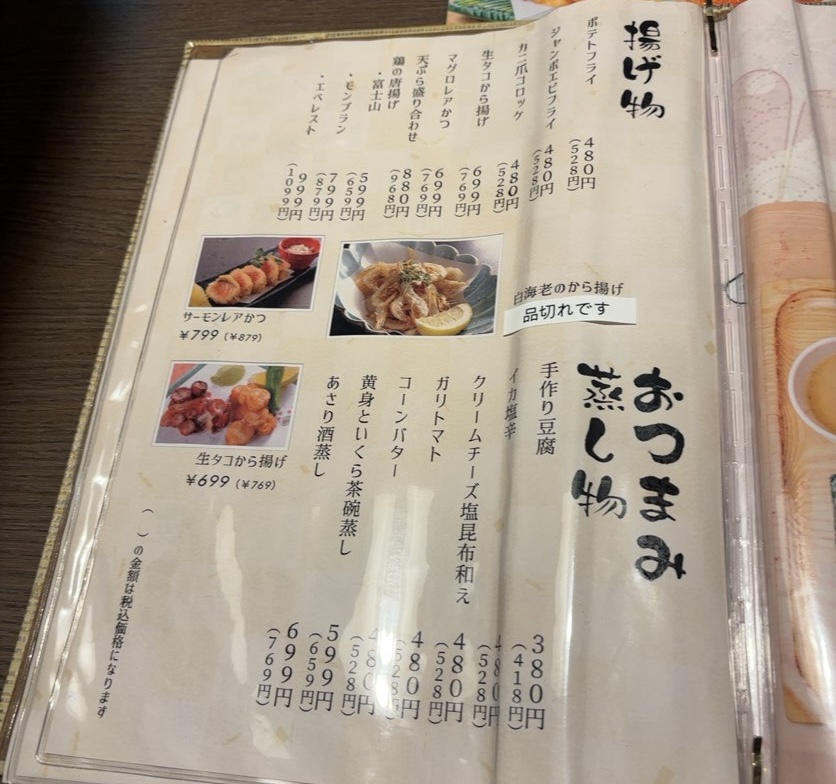 揚げ物
ポテトフライ
480円
(528円)
ジャンボエビフライ
480円
(528円)
カニ爪コロッケ
480円
(528円)
生タコから揚げ
699円
(769円)
マグロレアかつ
699円
(769円)
天ぷら盛り合わせ
880円
(968円)
鶏の唐揚げ
・富士山
599円
(659円)
・モンブラン
799円
(879円)
・エベレスト
999円
(1099円)
白海老のから揚げ
品切れです
サーモンレアかつ
¥799 (¥879)
生タコから揚げ
¥699 (¥769)
おつまみ
蒸し物
手作り豆腐
380円
(418円)
イカ塩辛
480円
(528円)
クリームチーズ塩昆布和え
480円
(528円)
ガリトマト
480円
(528円)
コーンバター
480円
(528円)
黄身といくら茶碗蒸し
599円
(659円)
あさり酒蒸し
699円
(769円)
( )の金額は税込価格になります